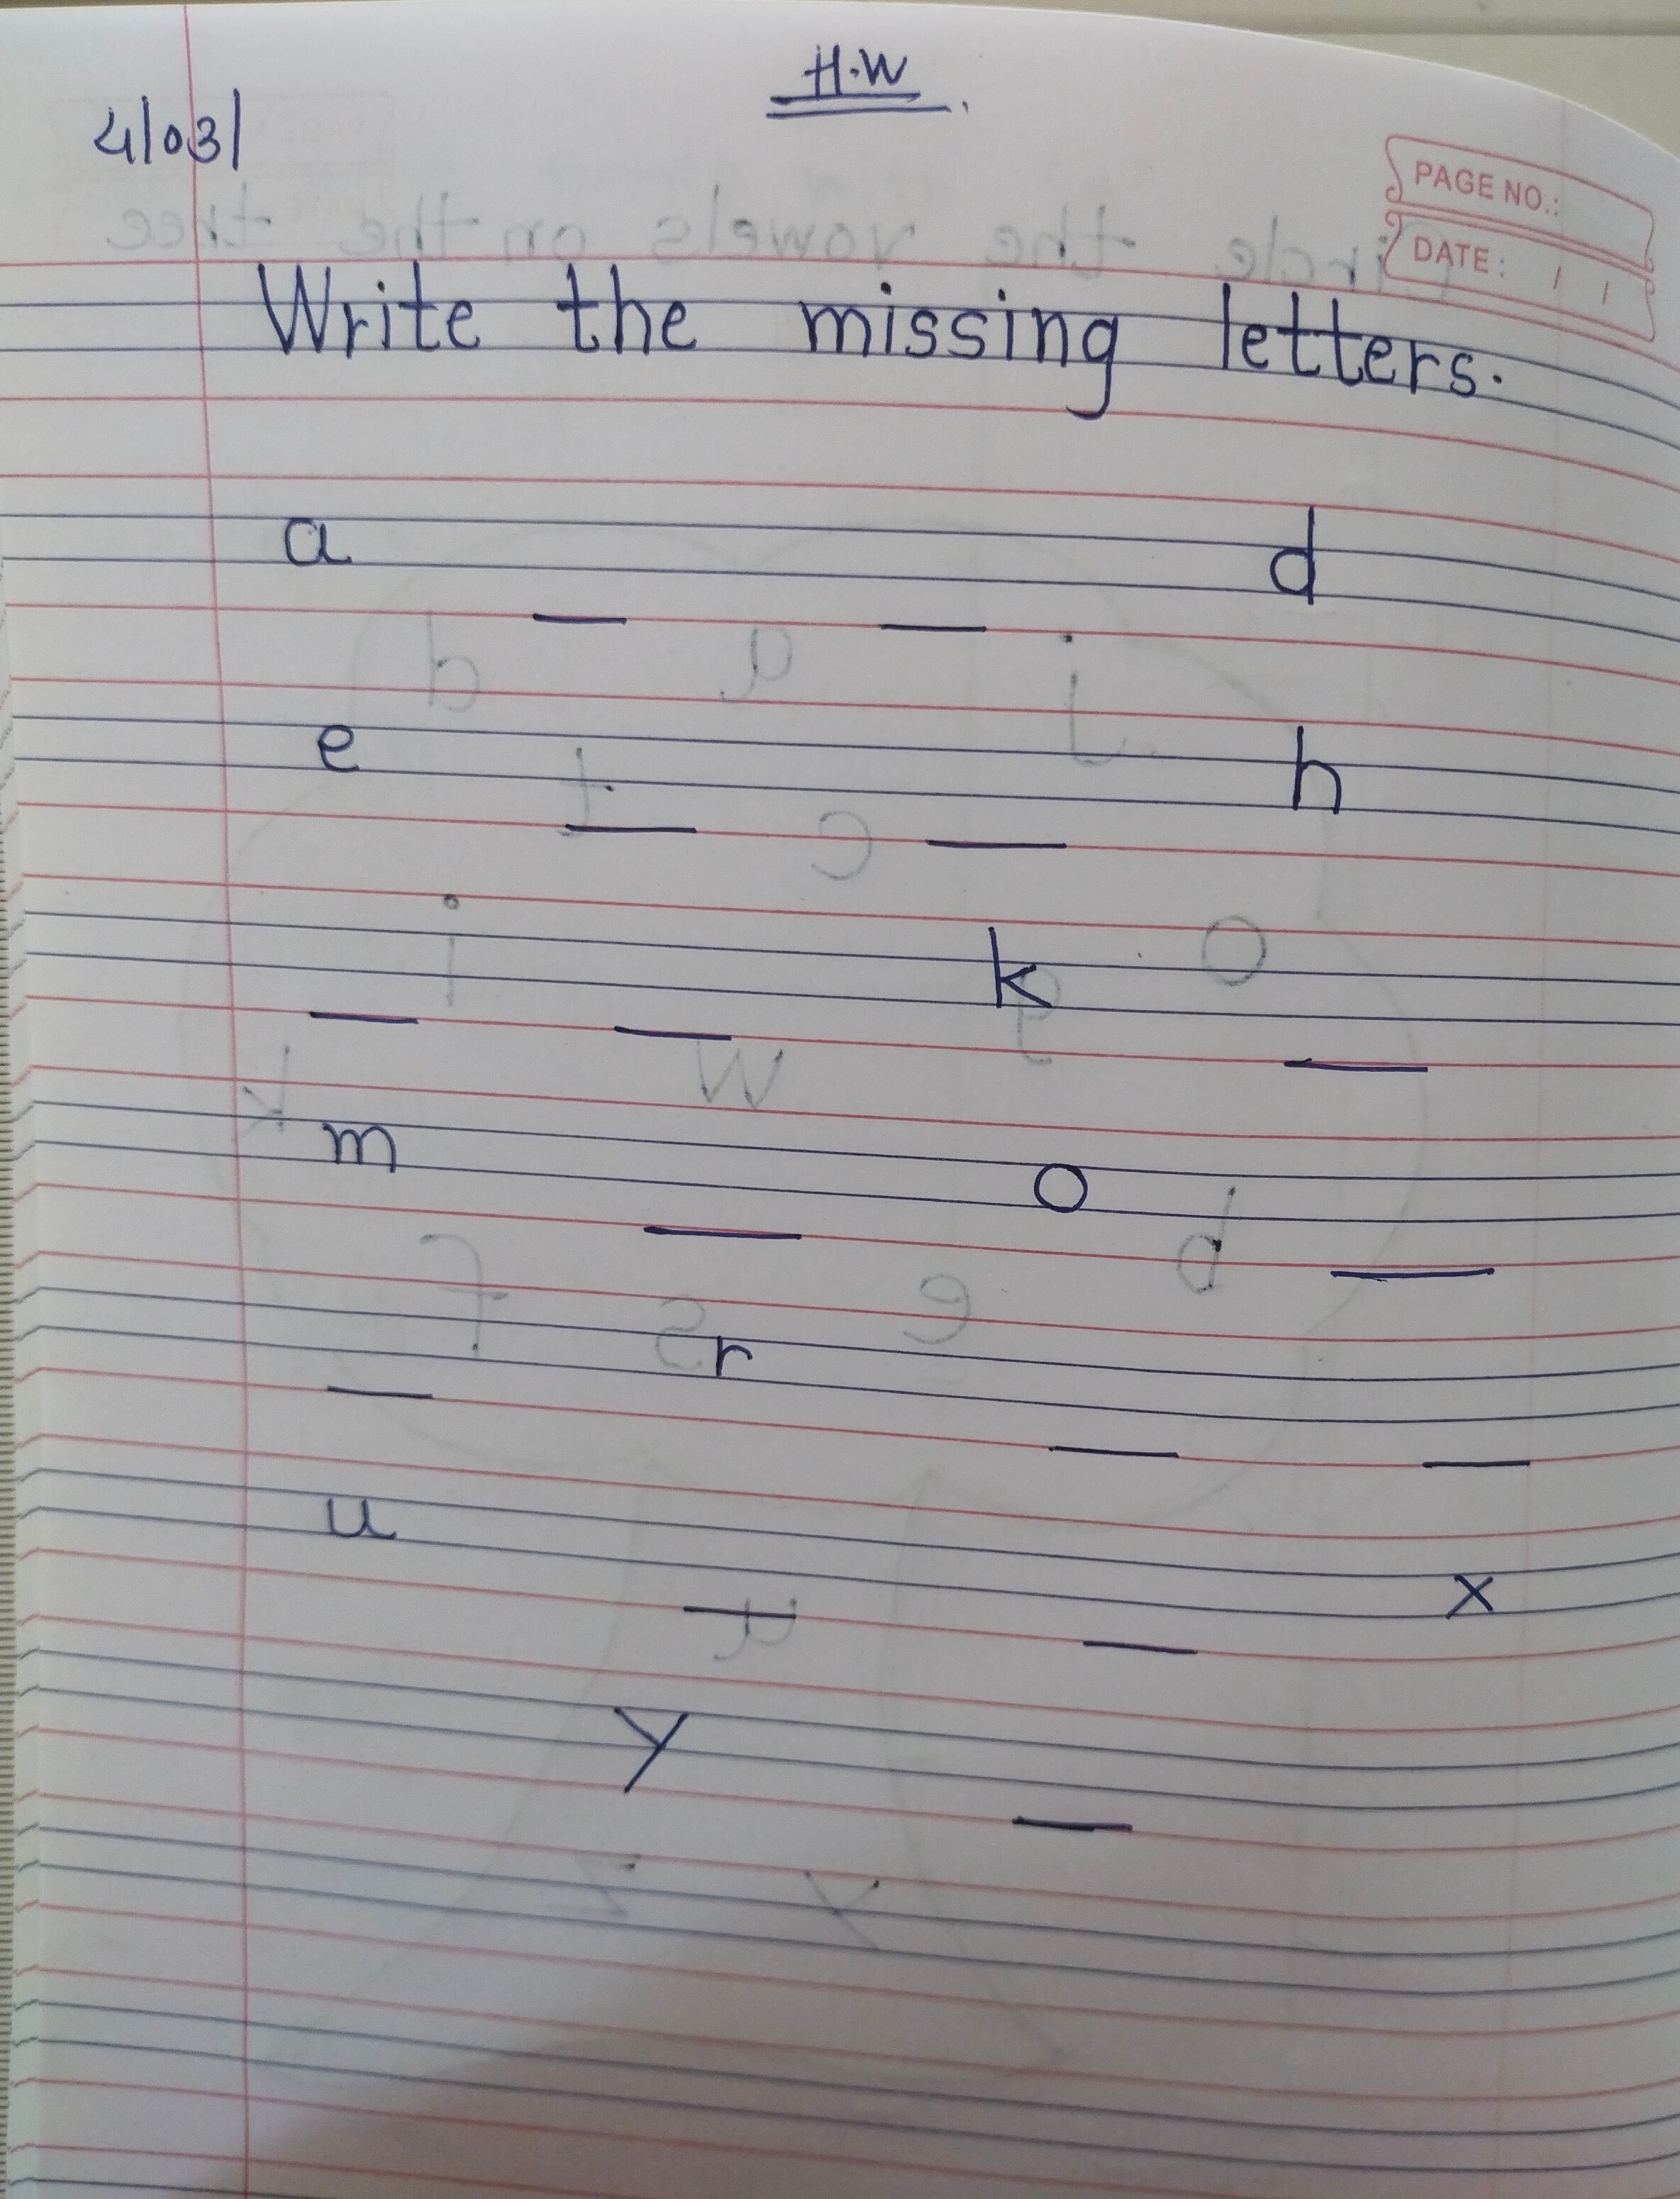 H.W
4/03/
PAGE NO.:
DATE: / /
Write the missing letters.
a __ __ d
e __ __ h
__ __ k __
m __ o __
__ r __ __
u __ __ x
y __